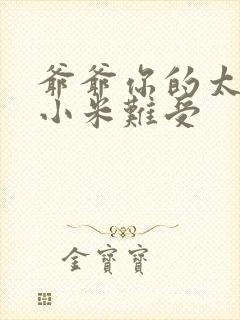 爺爺你的太
小米難受
金寶寶